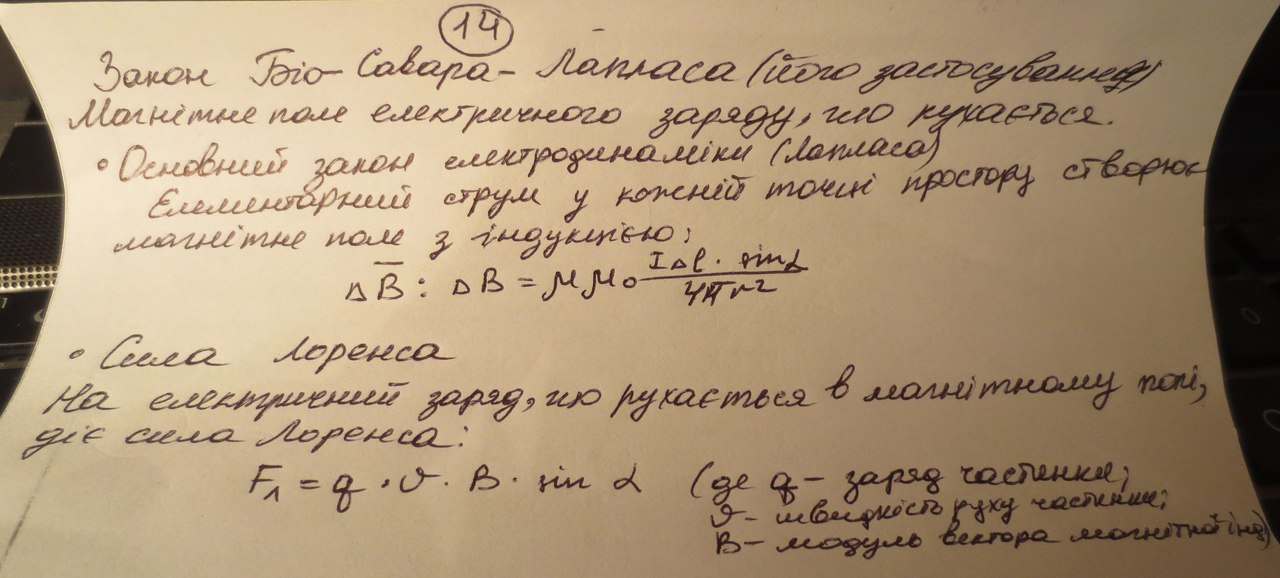 14
Закон Біо-Савара-Лапласа (його застосування)
Магнітне поле електричного заряду, що рухається.
• Основний закон електродинаміки (Лапласа)
Елементарний струм у кожній точці простору створює
магнітне поле з індукцією:
ΔB̅ : ΔB = μμ₀ IΔl · sinα / 4πr²
• Сила Лоренса
На електричний заряд, що рухається в магнітному полі,
діє сила Лоренса:
Fл = q · υ · B · sin α (де q – заряд частинки;
υ – швидкість руху частинки;
B – модуль вектора магнітної інд)